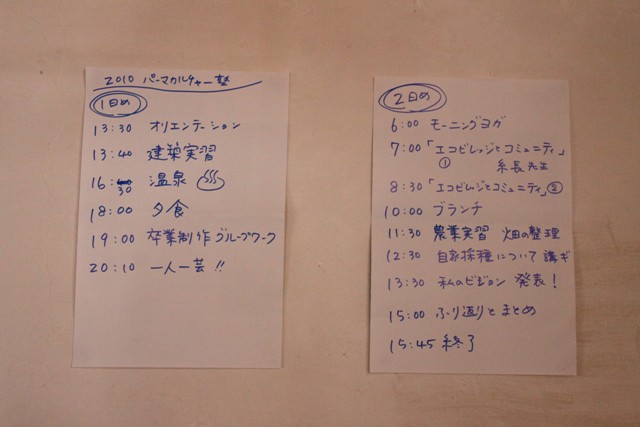 2010 パーマカルチャー塾
1日め
13:30 オリエンテーション
13:40 建築実習
16:30 温泉 ♨
18:00 夕食
19:00 卒業制作グループワーク
20:10 一人一芸!!
2日め
6:00 モーニングヨガ
7:00 「エコビレッジとコミュニティ」
① 糸長先生
8:30 「エコビレッジとコミュニティ」②
10:00 ブランチ
11:30 農業実習 畑の整理
12:30 自家採種について 講ギ
13:30 私のビジョン 発表!
15:00 ふり返りとまとめ
15:45 終了